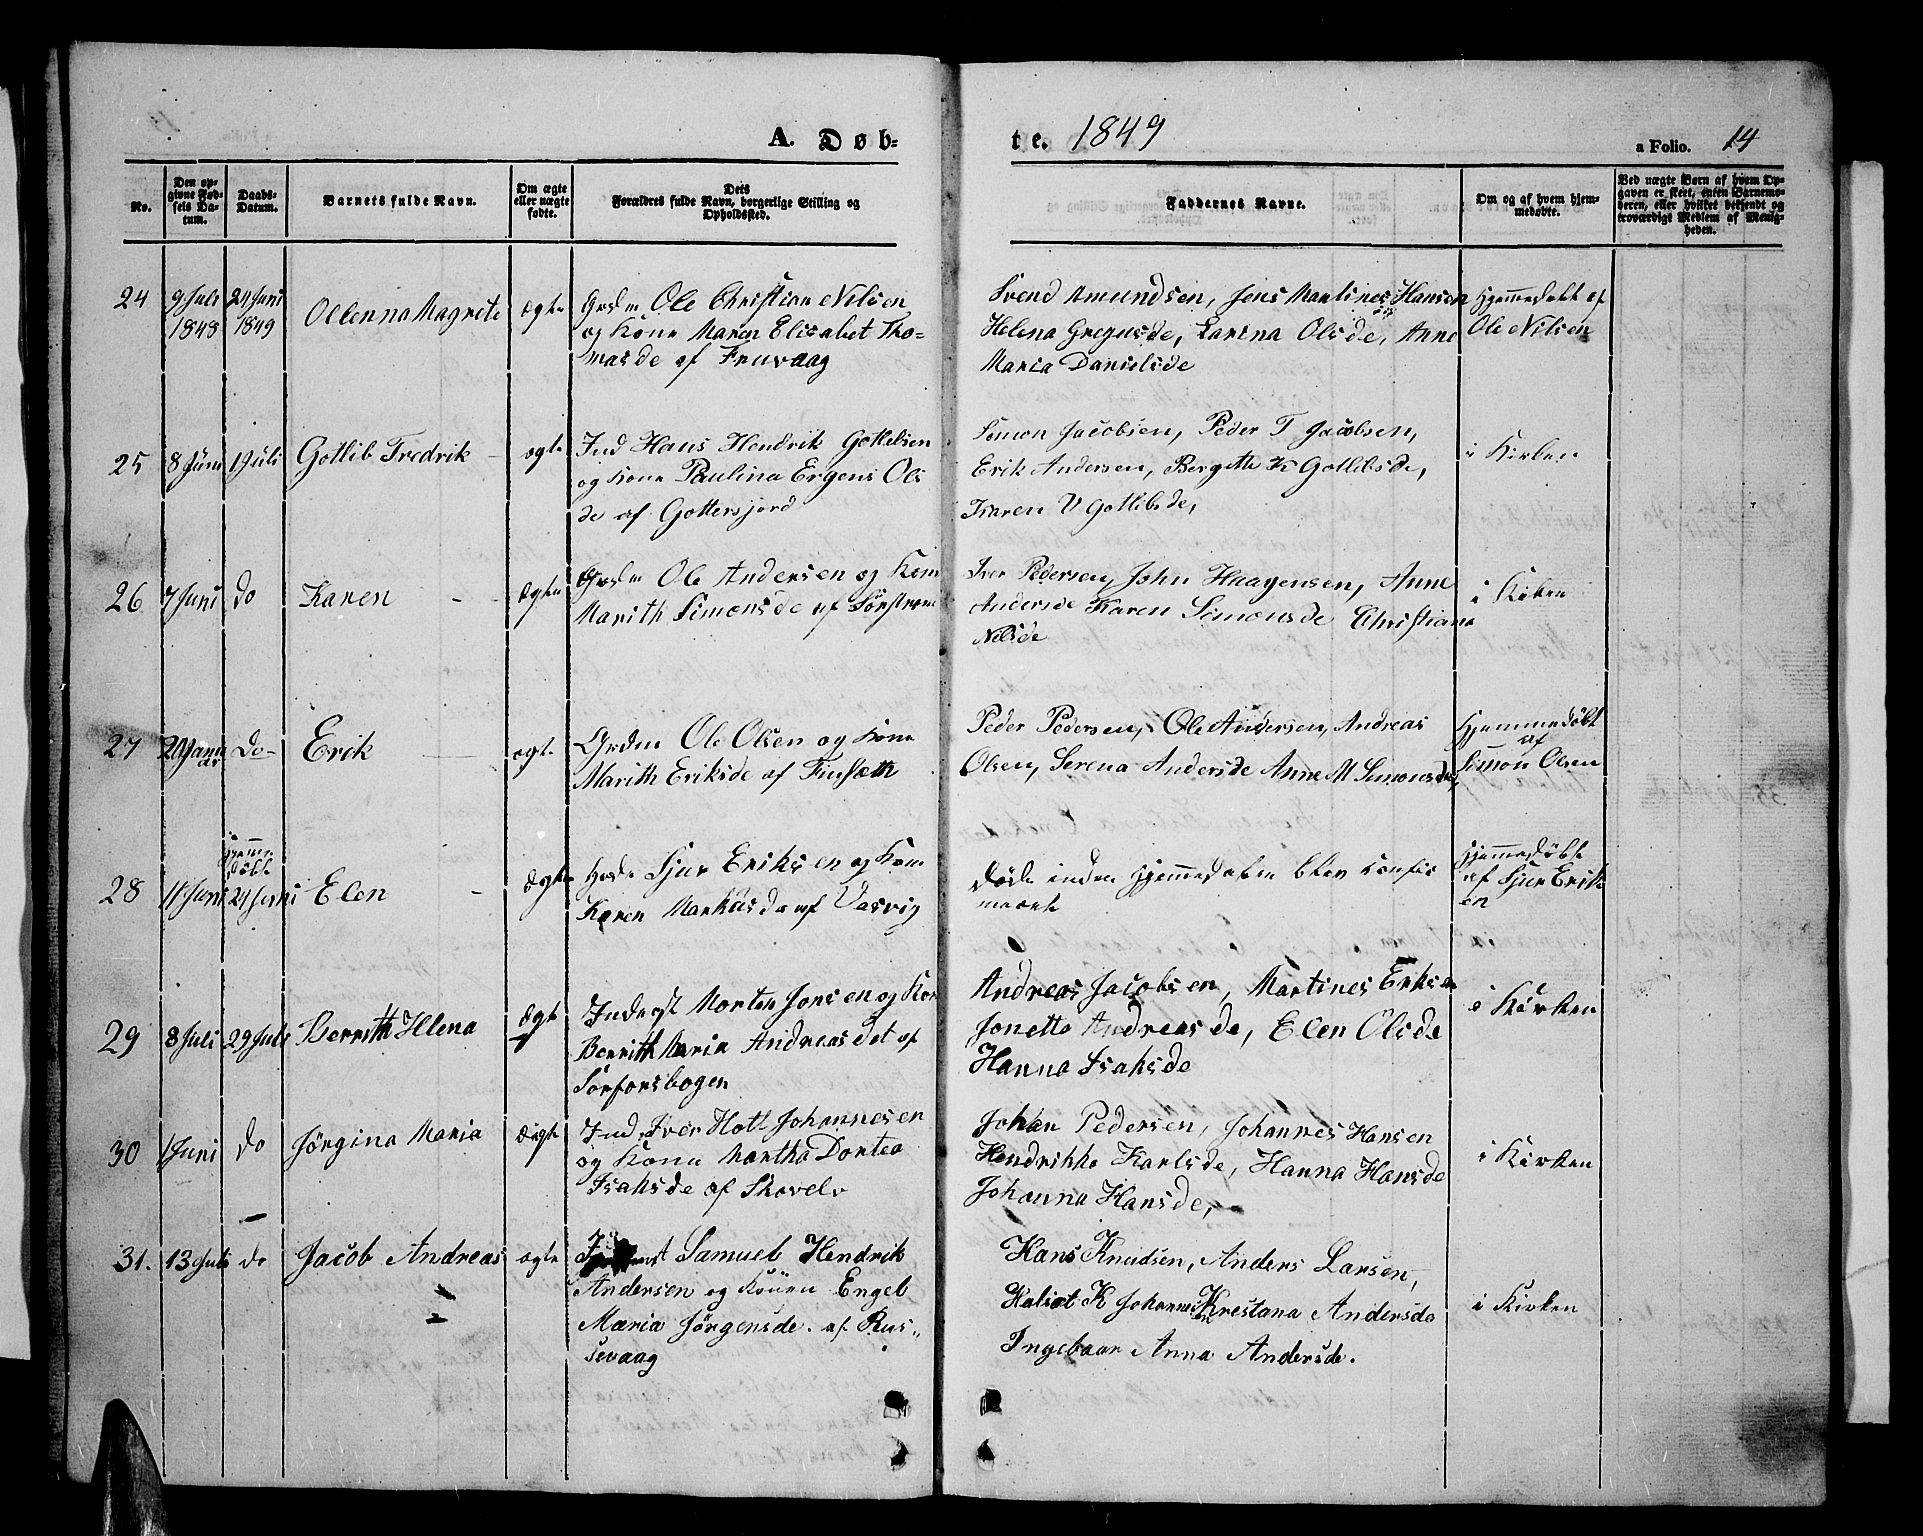 A. Døb-
te. 1849
a Folio. 14
No.
Den op-
givne Fød-
sels Da-
tum.
Daabs-
Datum.
Barnets fulde Navn.
Om ægte
eller uægte
fødte.
Dets
Forældres fulde Navn, borgerlige Stilling og
Opholdssted.
Faddernes Navne.
Om og af hvem hjem-
medøbte.
Ved uægte Børn af hvem Op-
gaven er skeet, enten Barnemo-
deren, eller hvilket bekjendt og
troværdigt Medlem af Menig-
heden.
24
9 Juli
1848
24 Juni
1849
Ollenna Magrete
Ægte
Grdm Ole Christian Nilsen
og Kone Maren Elisabet Tho-
masde af Fruvaag
Svend Amundsen, Jens Martines Hansen
Helena Gregusde, Larina Olsde, Anne
Maria Danielsde
Hjemmedøbt af
Ole Nilsen
25
8 Juni
1 Juli
Gotlib Fredrik
ægte
Ind Hans Hendrik Gotlibsen
og Kone Paulina Ergens Ols
de af Gottersjord
Simon Jacobsen, Peder T Jacobsen,
Erik Andersen, Bergitte K Gotlibsde,
Karen V Gotlibsde,
i Kirken
26
7 Juni
do
Karen
Ægte
Grdm Ole Andersen og Kone
Marith Simonsde af Sørstrøm
Iver Pedersen, John Haagensen, Anne
Andersde Karen Simonsde Christiana
Nilsde
i Kirken
27
20 Janu
ar
Do-
Erik
ægte
Grdm Ole Olsen og Kone
Marith Eriksde af Finsæth
Peder Pedersen, Ole Andersen, Andreas
Olsen, Serena Andersde Anne M Simonsde,
Hjemmedøbt
af
Simon Olsen
28
11 Juni
Hjemme
døbt
24 Juni
Elen
Ægte
Grdm Sjur Eriksen og Kone
Karen Markusde af Vasvig
Døde inden Hjemmedaaben blev Konfir
meret
Hjemmedøbt
af Sjur Eriks
en
29
8 Juli
29 Juli
Berrith Helena
Ægte
Inderst Morten Jonsen og Kone
Berrith Maria Andreasdet af
Sørforsbogen
Andreas Jacobsen, Martines Eriksen
Jonetta Andreasde, Elen Olsde
Hanna Isaksde
i Kirken
30
1 Juni
do
Jørgina Maria
Ægte
Ind. Iver Holt Johannesen
og Kone Martha Dortea
Isaksde af Skovelv
Johan Pedersen, Johannes Hansen
Hendrikke Karlsde, Hanna Hansde
Johanna Hansde,
i Kirken
31.
13 Juli
do
Jacob Andreas
ægte
Samuel Hendrik
Andersen og Konen Engel
Maria Jørgensde. af Rus-
sevaag
Hans Knudsen, Anders Larsen,
K Johannesen Krestana Andersde
Ingebaar Anna Andersde.
i Kirken